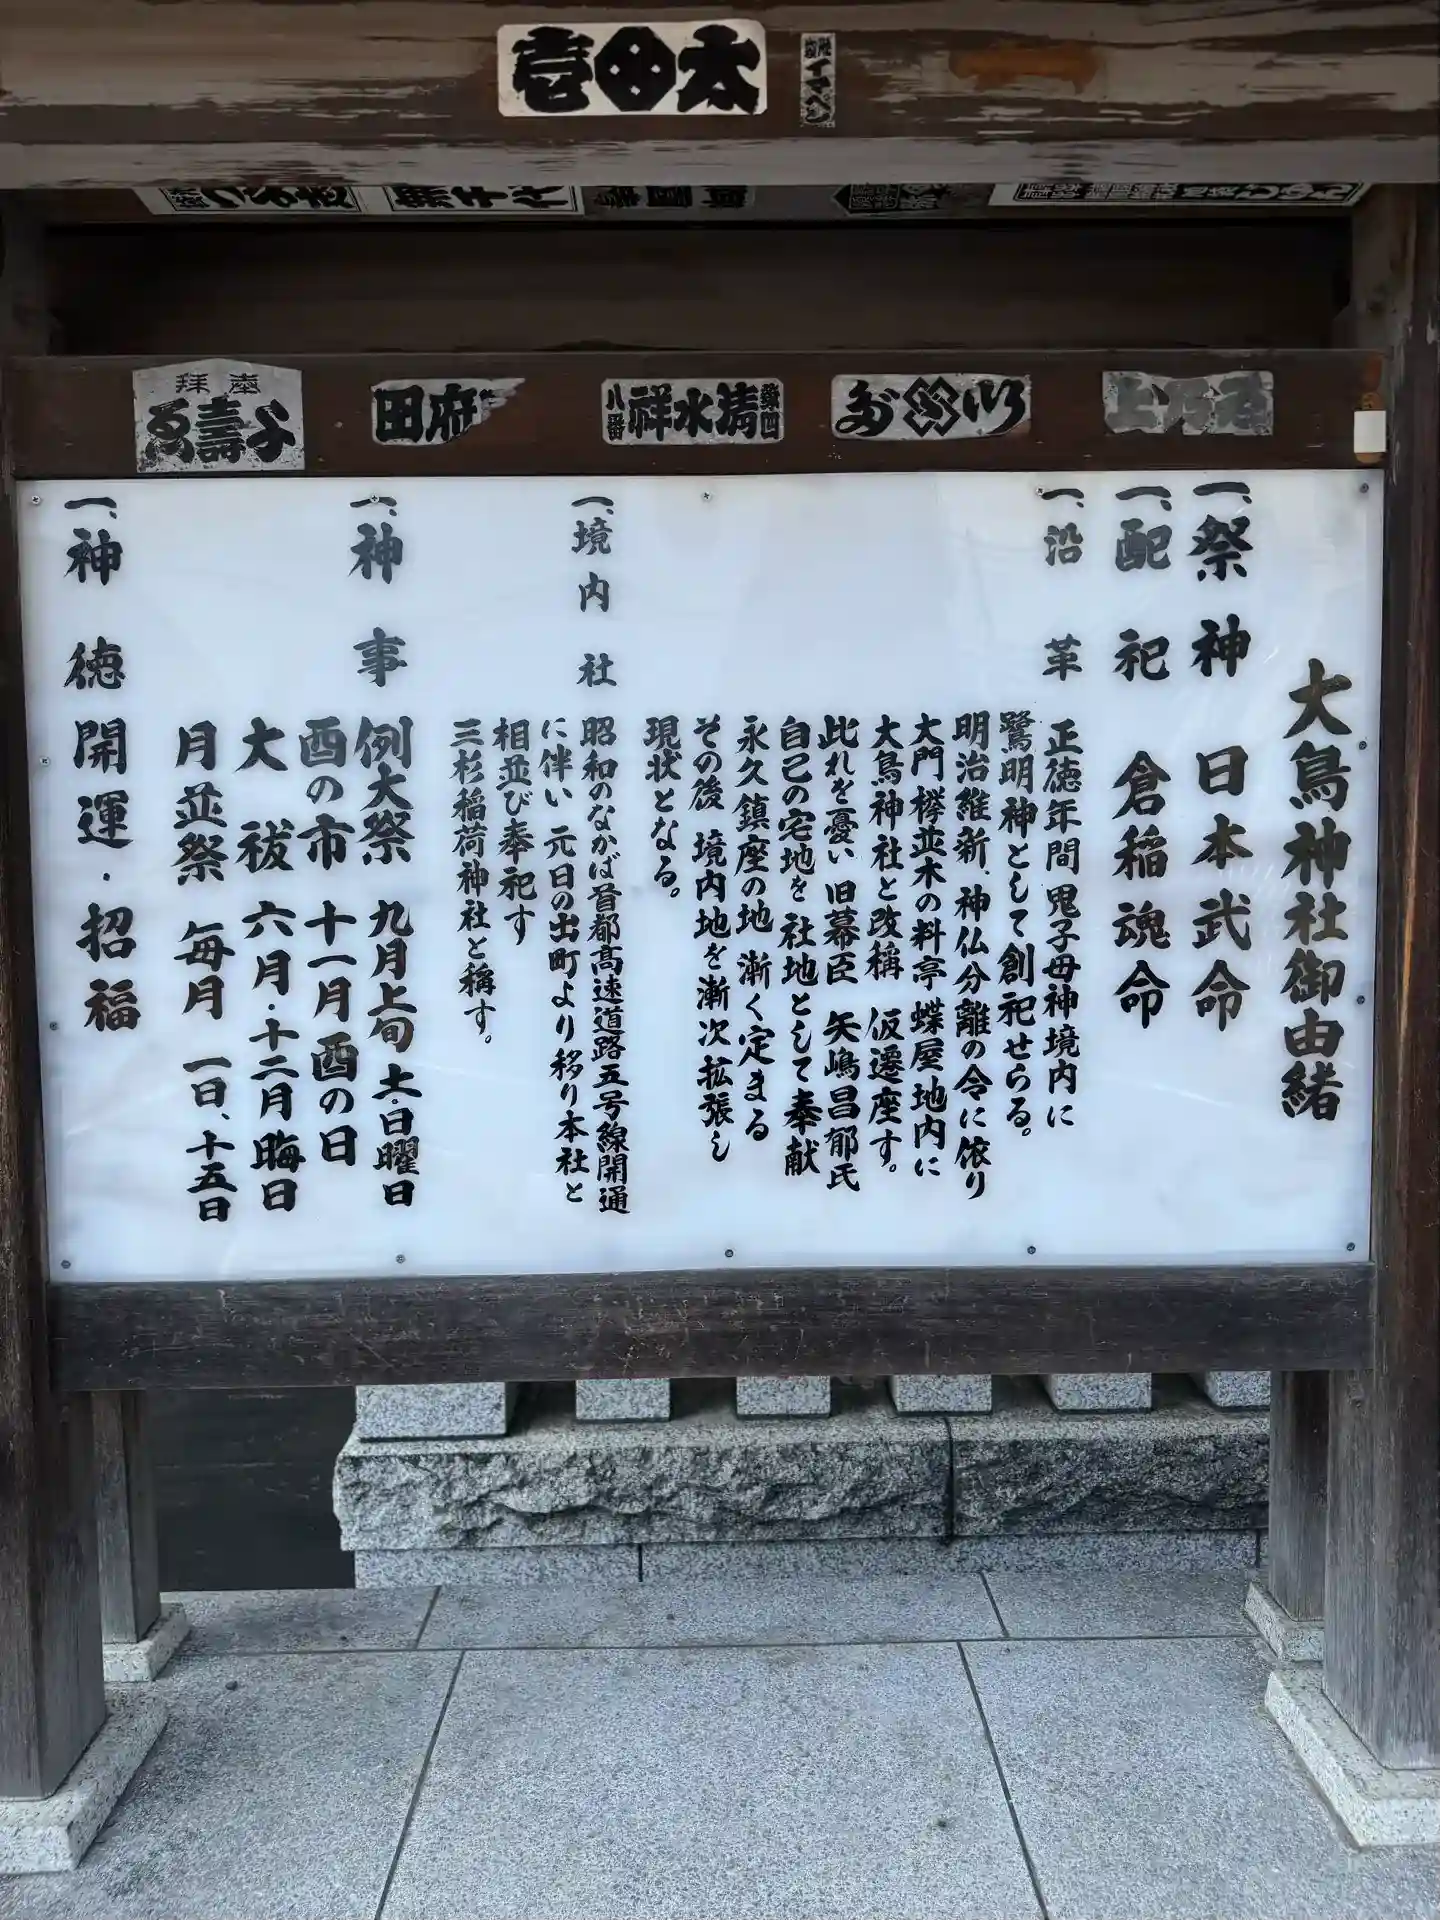 大鳥神社御由緒
一、祭神 日本武命
一、配祀 倉稲魂命
一、沿革 正徳年間 鬼子母神境内に
鷺明神として創祀せらる。
明治維新、神仏分離の令に依り
大門欅並木の料亭 蝶屋地内に
大鳥神社と改称 仮遷座す。
此れを憂い 旧幕臣 矢嶋昌郁氏
自己の宅地を 社地として奉献
永久鎮座の地 漸く定まる
その後 境内地を漸次拡張し
現状となる。
一、境内社 昭和のなかば首都高速道路五号線開通
に伴い 元日の出町より移り本社と
相並び奉祀す
三杉稲荷神社と称す。
一、神事 例大祭 九月上旬 土・日曜日
酉の市 十一月 酉の日
大祓 六月・十二月晦日
月並祭 毎月 一日、十五日
一、神徳 開運・招福
太田壱
イマヘシ
奉拝
府田
清水祥
第四
八番